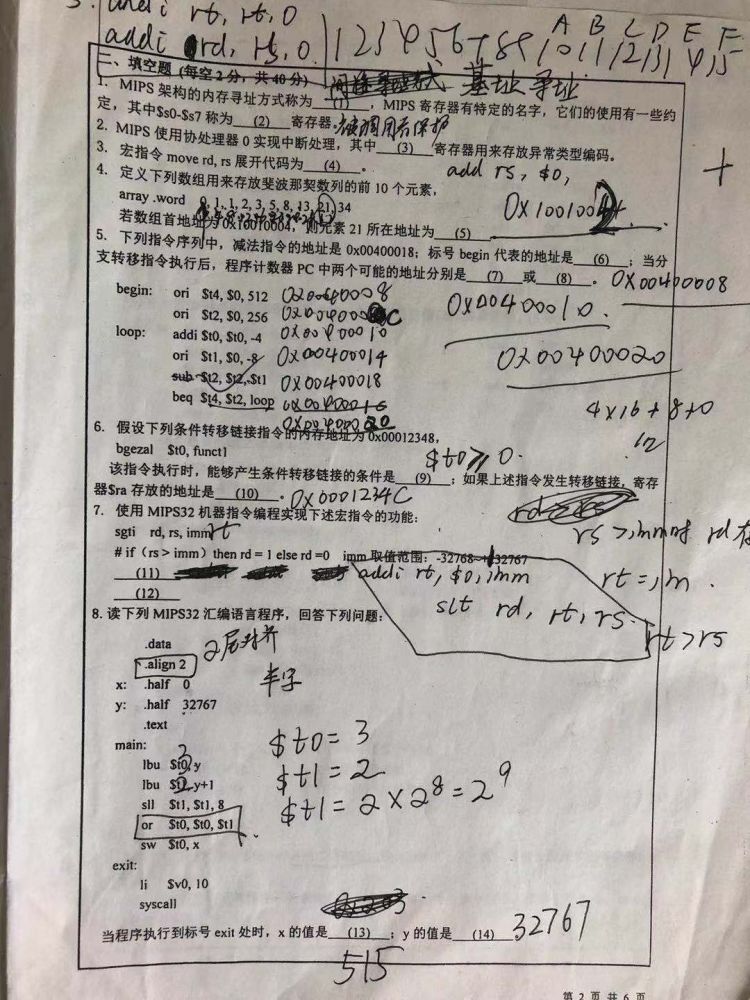 addi rt, rt, 0
addi rd, rs, 0
1 2 3 4 5 6 7 8 9 10 11 12 13 14 15
A B C D E F
二、填空题（每空2分，共40分）
基址寻址
1. MIPS 架构的内存寻址方式称为 (1) ，MIPS 寄存器有特定的名字，它们的使用有一些约
定，其中$s0-$s7 称为 (2) 寄存器。被调用者保护
2. MIPS 使用协处理器 0 实现中断处理，其中 (3) 寄存器用来存放异常类型编码。
3. 宏指令 move rd, rs 展开代码为 (4) 。
add rs, $0,
4. 定义下列数组用来存放斐波那契数列的前 10 个元素，
array .word 0, 1, 1, 2, 3, 5, 8, 13, 21, 34
若数组首地址为 0x10010004，则元素 21 所在地址为 (5)
5. 下列指令序列中，减法指令的地址是 0x00400018；标号 begin 代表的地址是 (6) ；当分
支转移指令执行后，程序计数器 PC 中两个可能的地址分别是 (7) 或 (8) 。
0x00400008
begin: ori $t4, $0, 512 0x00400008
0x00400010.
ori $t2, $0, 256
loop: addi $t0, $t0, -4 0x00400010
ori $t1, $0, -8 0x00400014
0x00400020
sub $t2, $t2, $t1 0x00400018
beq $t4, $t2, loop
0x00400020
4x16+8+0
12
6. 假设下列条件转移链接指令的内存地址为 0x00012348，
bgezal $t0, funct1
$t0≥0.
该指令执行时，能够产生条件转移链接的条件是 (9) ；如果上述指令发生转移链接，寄存
器$ra 存放的地址是 (10) 。0x0001234C
7. 使用 MIPS32 机器指令编程实现下述宏指令的功能：
sgti rd, rs, imm rt
rs>imm时 rd
# if（rs > imm）then rd = 1 else rd =0 imm 取值范围：-32768~+32767
(11) addi rt, $0, imm
rt=im.
(12)
slt rd, rt, rs.
rt>rs
8. 读下列 MIPS32 汇编语言程序，回答下列问题：
.data
.align 2
x: .half 0
半字
y: .half 32767
.text
main:
$t0=3
lbu $t0, y
3
lbu $t1, y+1
2
$t1=2
sll $t1, $t1, 8
$t1=2×2^8=2^9
or $t0, $t0, $t1
sw $t0, x
exit:
li $v0, 10
syscall
当程序执行到标号 exit 处时，x 的值是 (13) ；y 的值是 (14) 。
32767
515
第 2 页 共 6 页